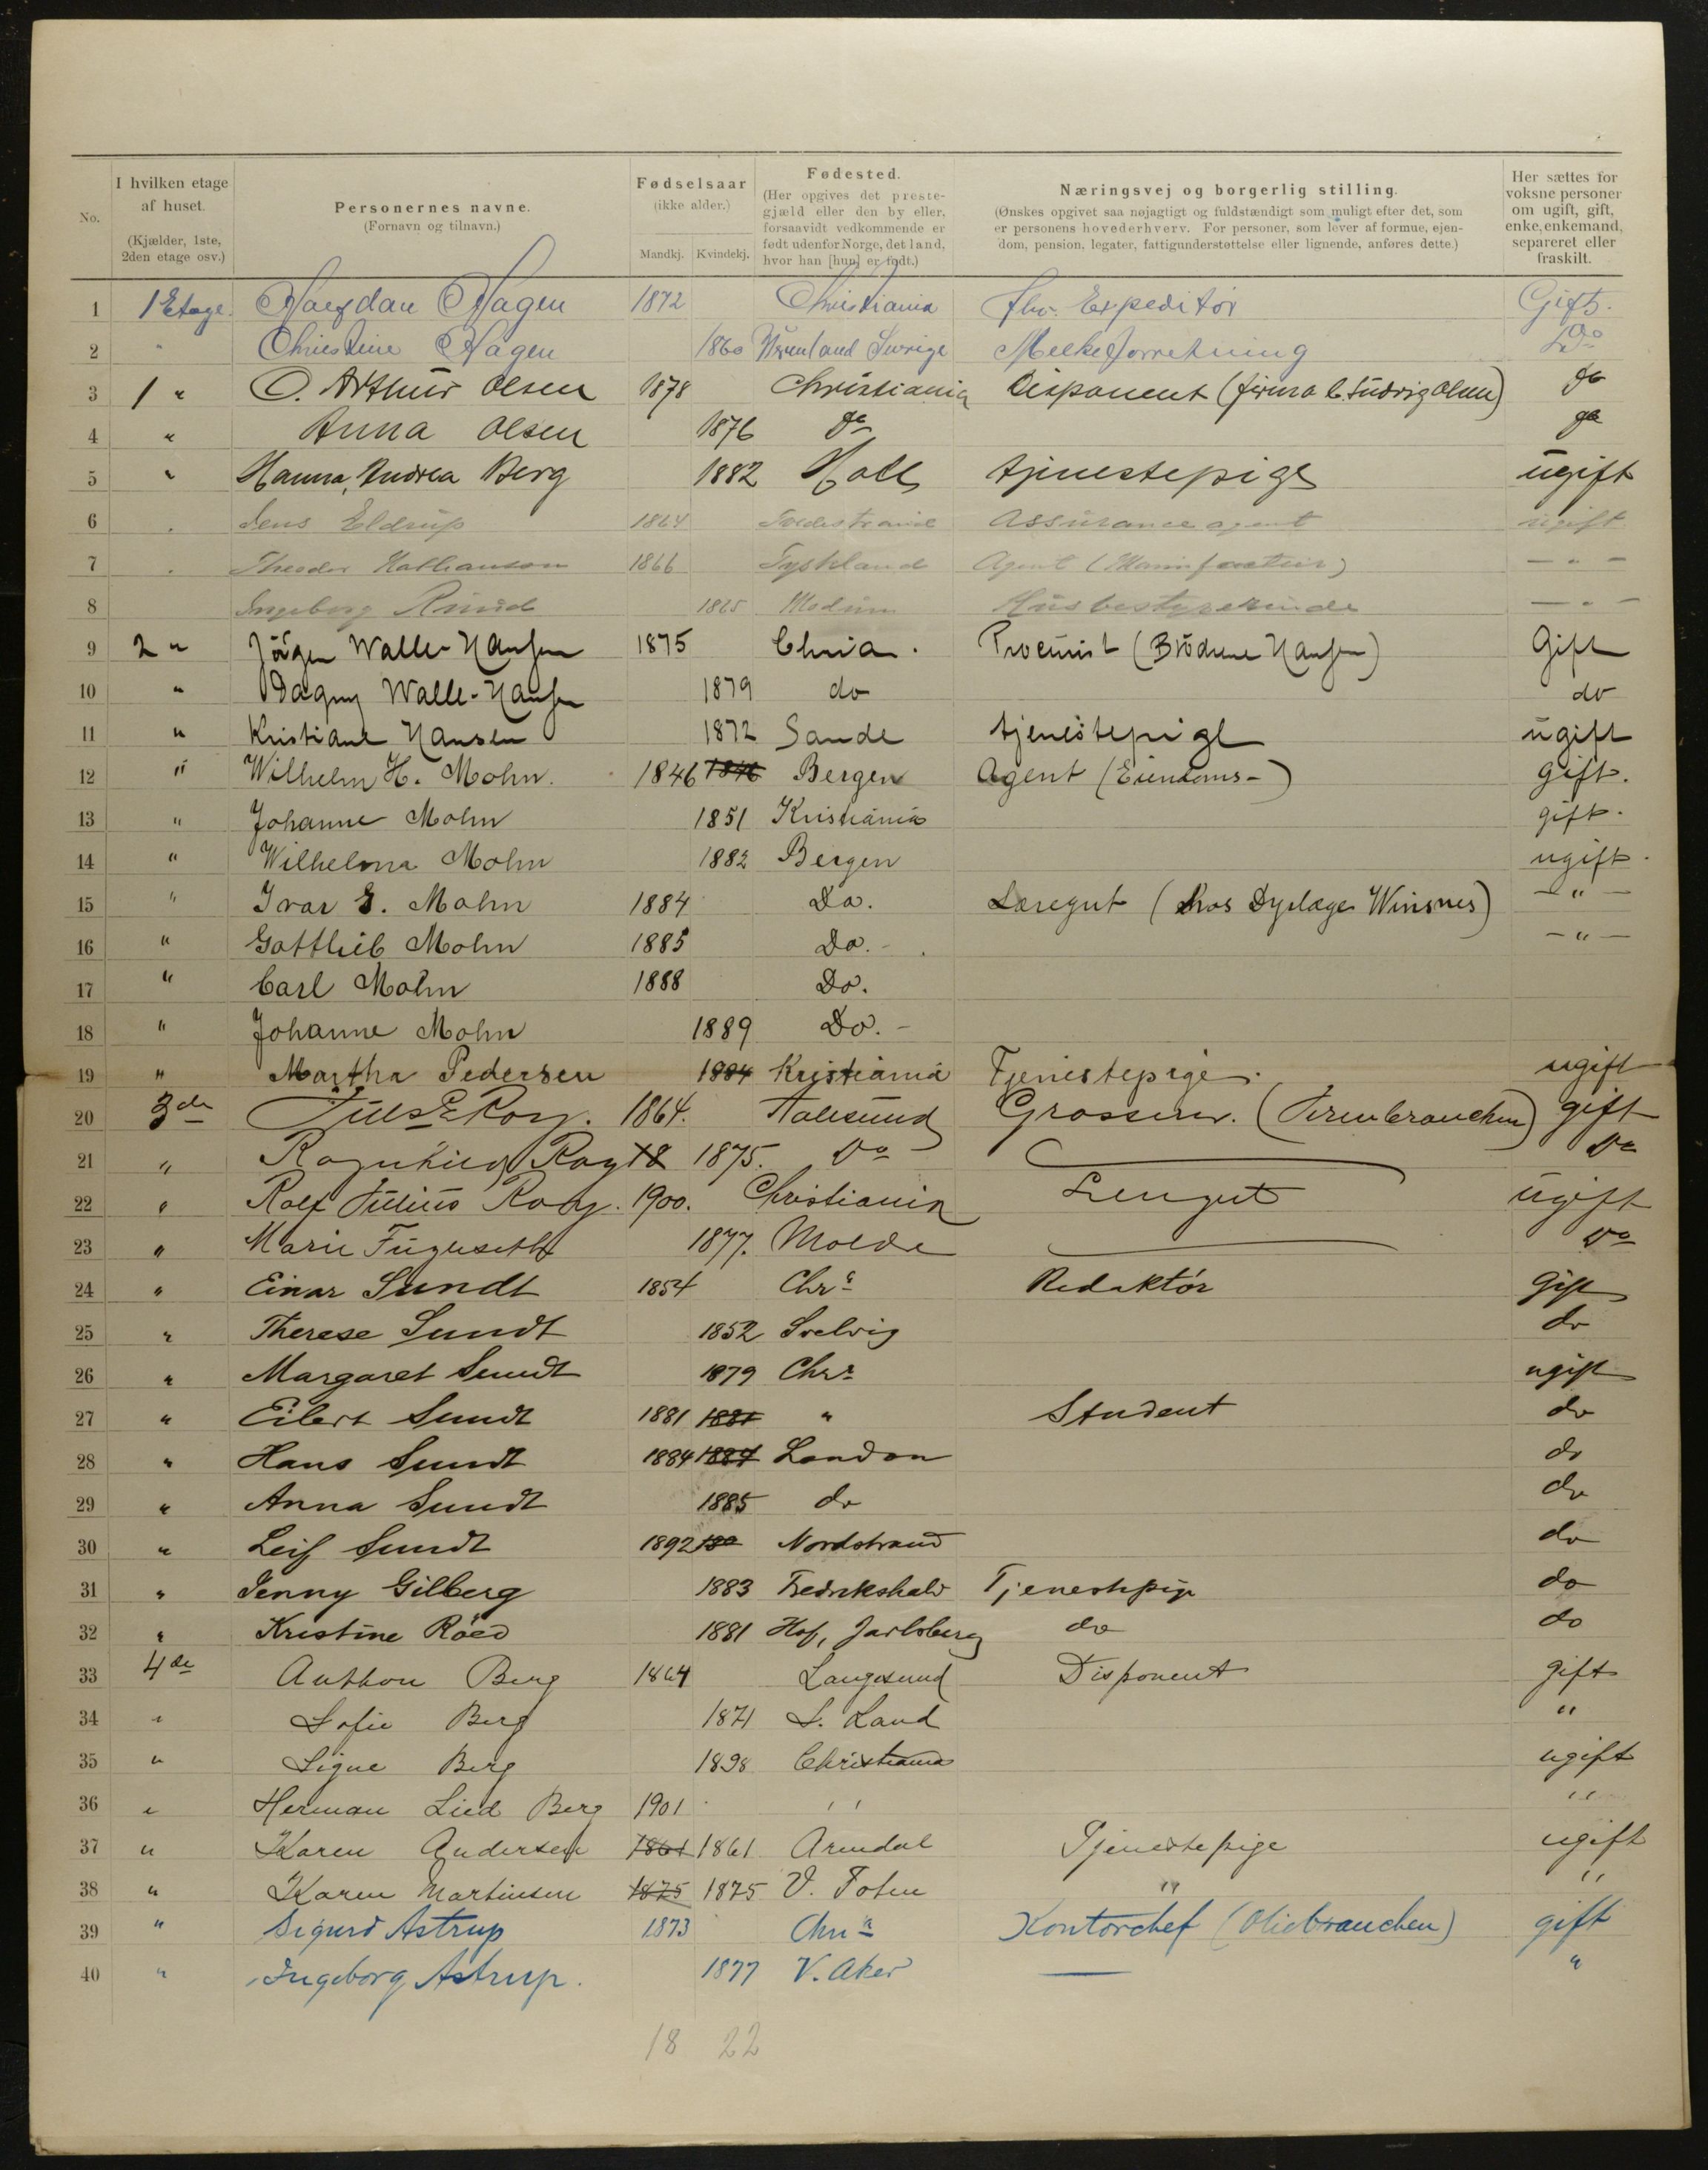 No.
I hvilken etage af huset. (Kjælder, 1ste, 2den etage osv.)
Personernes navne. (Fornavn og tilnavn.)
Fødselsaar (ikke alder.) Mandkj. Kvindekj.
Fødested. (Her opgives det prestegjæld eller den by eller, forsaavidt vedkommende er født udenfor Norge, det land, hvor han [hun] er født.)
Næringsvej og borgerlig stilling. (Ønskes opgivet saa nøjagtigt og fuldstændigt som muligt efter det, som er personens hovederhverv. For personer, som lever af formue, ejendom, pension, legater, fattigunderstøttelse eller lignende, anføres dette.)
Her sættes for voksne personer om ugift, gift, enke, enkemand, separeret eller fraskilt.
1 1 Etage. Hagen 1872 Christiania Expeditör Gift.
2 " Christine Hagen 1860 Sverige Melkeforretning Do
3 1 " O. Arthur Olsen 1878 Christiania Disponent (firma C. Ludvig Olsen) do
4 " Anna Olsen 1876 do do
5 " Hanna Andrea Berg 1882 Hole tjenestepige ugift
6 " Jens Eldrup 1864 Tvedestrand Assuranceagent ugift
7 " Theodor Nathanson 1866 Tyskland Agent (Manufactur) — " —
8 Ingeborg Ruud 1865 Modum Husbestyrerinde — " —
9 2 " Jörgen Walle-Hansen 1875 Chria. Procurist (Brödrene Hansen) Gift
10 " Dagny Walle-Hansen 1879 do do
11 " Kristiane Hansen 1872 Sande tjenestepige ugift
12 " Wilhelm H. Mohn. 1846 1846 Bergen Agent (Eiendoms-) gift.
13 " Johanne Mohn 1851 Kristiania gift.
14 " Wilhelma Mohn 1882 Bergen ugift.
15 " Ivar E. Mohn 1884 Do. Læregut (hos Dyrlæge Winsnes) — " —
16 " Gottlieb Mohn 1885 Do. — " —
17 " Carl Mohn 1888 Do.
18 " Johanne Mohn 1889 Do.
19 " Martha Pedersen 1884 Kristiania Tjenestepige. ugift
20 3de 1864. Aalesund Grosserer. gift
21 " 18 1875. Do Do
22 " Rolf Julius 1900. Christiania ugift
23 " Marie Fugleseth 1877. Molde Do
24 " Einar Sundt 1854 Chra Redaktör Gift
25 " Therese Sundt 1852 Svelvig do
26 " Margaret Sundt 1879 Chra ugift
27 " Eilert Sundt 1881 1881 " Student do
28 " Hans Sundt 1884 1884 London do
29 " Anna Sundt 1885 do do
30 " Leif Sundt 1892 Nordstrand do
31 " Jenny Gilberg 1883 Fredrikshald Tjenestepige do
32 " Kristine Röed 1881 Hof, Jarlsberg do do
33 4de Anthon Berg 1864 Langesund Disponent gift
34 " Sofie Berg 1871 S. Land "
35 " Signe Berg 1898 Christiania ugift
36 " Herman Lied Berg 1901 " "
37 " Karen Andersen 1861 1861 Arendal Tjenestepige ugift
38 " Karen Martinsen 1875 1875 V. Toten " "
39 " Sigurd Astrup 1873 Chra Kontorchef (Oliebranchen) gift
40 " Ingeborg Astrup. 1877 V. Aker — "
18 22